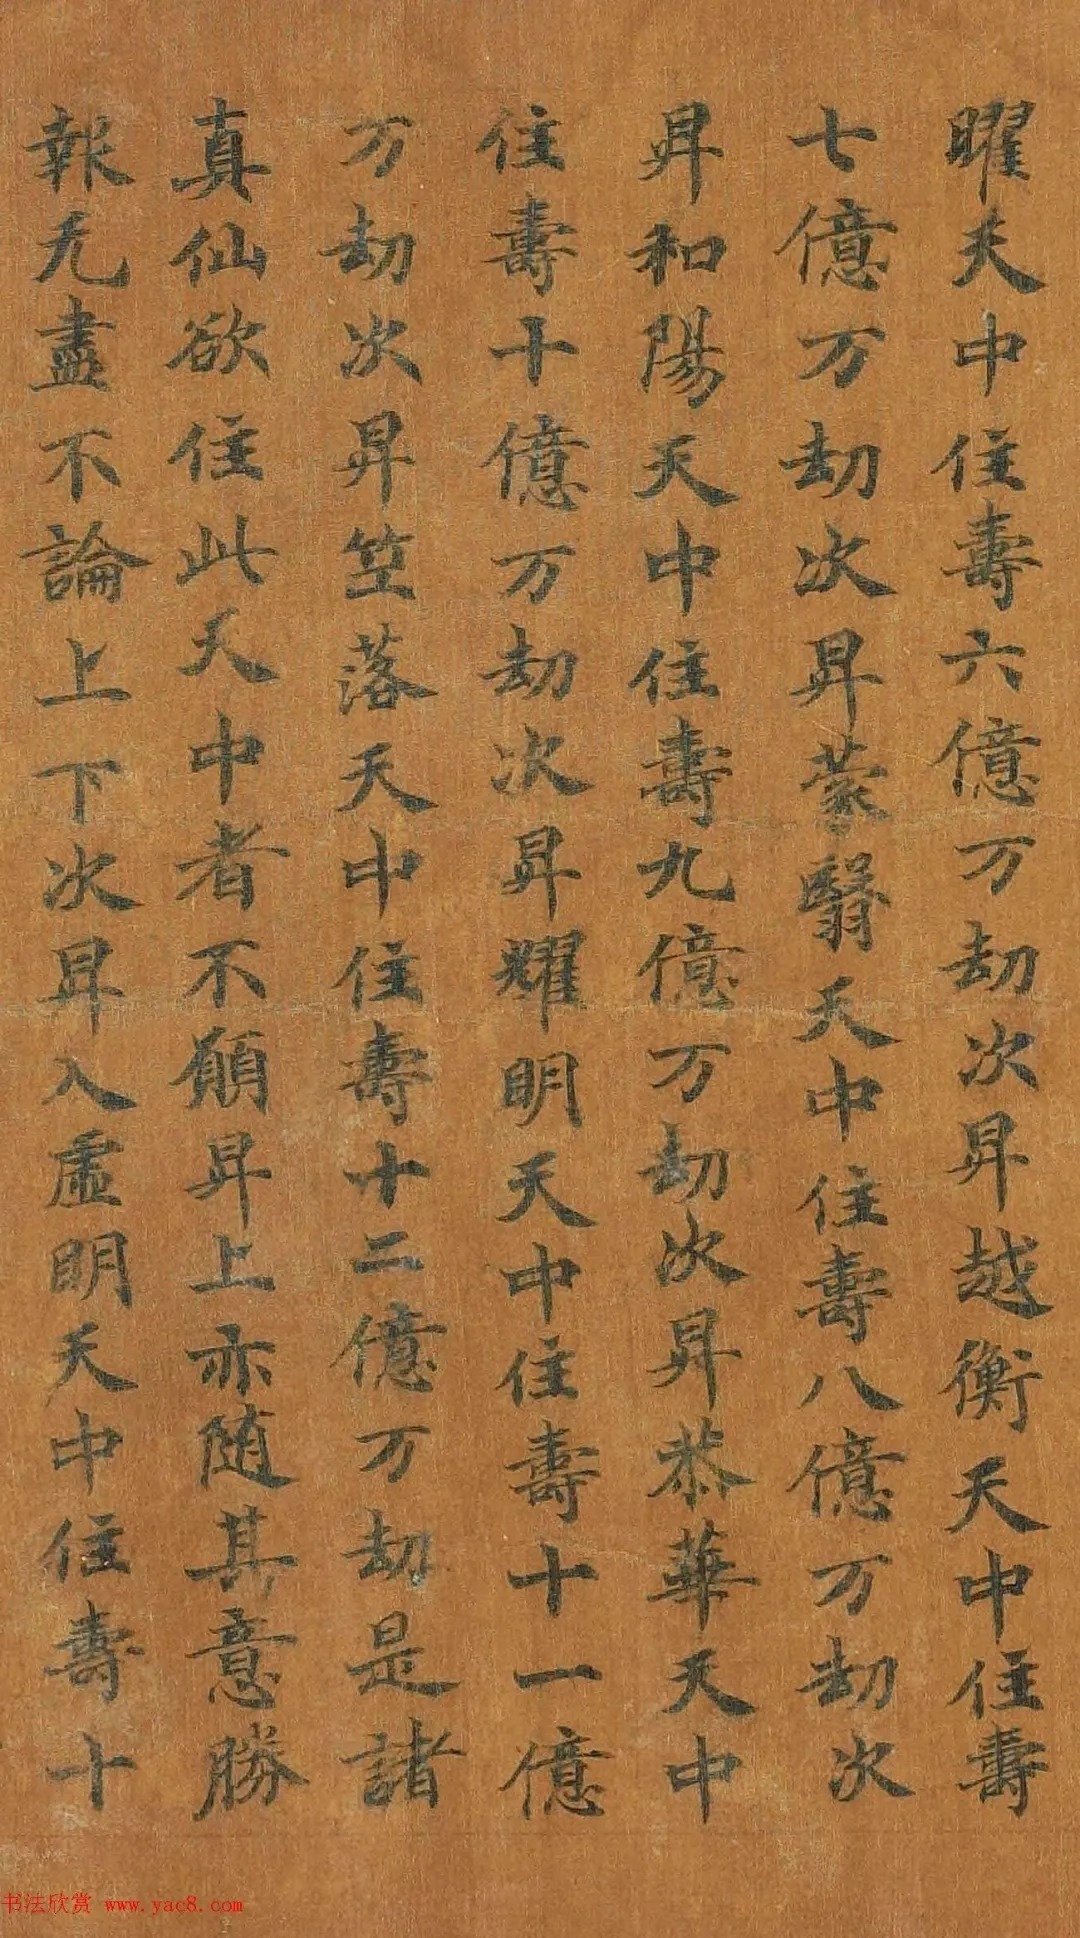 曜天中住壽六億万劫次昇越衡天中住壽
七億万劫次昇蒙翳天中住壽八億万劫次
昇和陽天中住壽九億万劫次昇恭華天中
住壽十億万劫次昇耀明天中住壽十一億
万劫次昇笁落天中住壽十二億万劫是諸
真仙欲住此天中者不願昇上亦随其意勝
報无盡不論上下次昇入虛明天中住壽十
书法欣赏 www.yac8.com